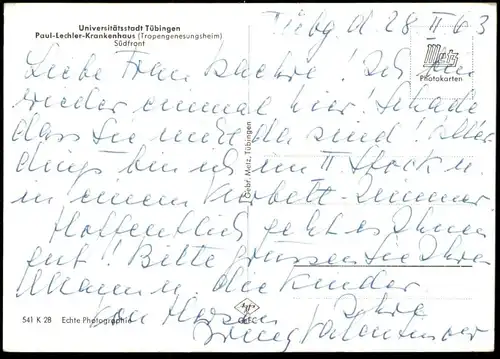 Universitätsstadt Tübingen
Paul-Lechler-Krankenhaus (Tropengenesungsheim)
Südfront
Tübg. d. 28 II 63
Metz
Photokarten
Liebe Frau ! Ich bin
wieder einmal hier! Schade
dass Sie nicht da sind! Aller-
dings bin ich im II. Stock u.
in einem bett-Zimmer
Hoffentlich geht es Ihnen
gut! Bitte grüssen Sie Ihren
Mann u. die Kinder.
Von Herzen Ihre
Gebr. Metz, Tübingen
541 K 28 Echte Photographie
Agfa